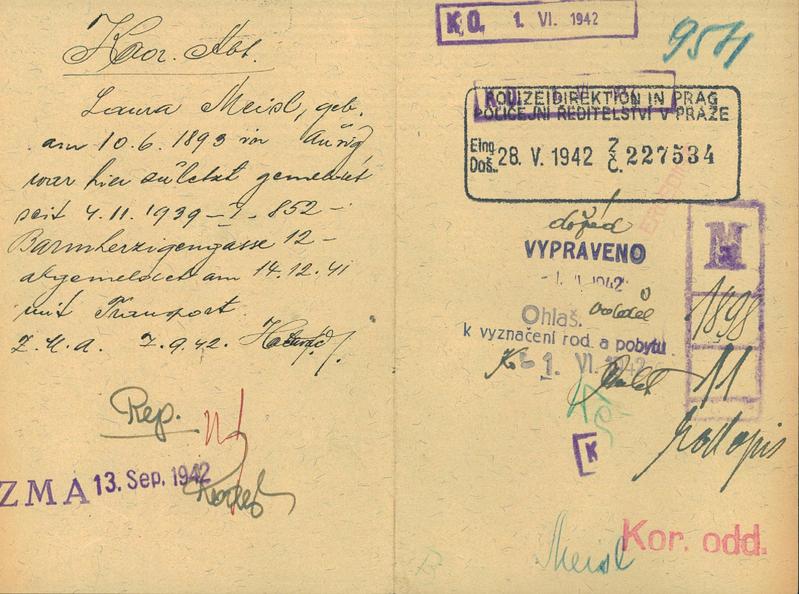 Kor. Abt.
Laura Meisl, geb.
am 10.6.1893 in Aussig,
war hier zuletzt gemeldet
seit 4.11.1939 – I – 852 –
Barmherzigengasse 12 –
abgemeldet am 14.12.41
mit Transport
Z.M.A. 7.9.42.
Rep.
ZMA 13. Sep. 1942
K.O. 1. VI. 1942
9571
POLIZEIDIREKTION IN PRAG
POLICEJNÍ ŘEDITELSTVÍ V PRAZE
Eing. Doš. 28. V. 1942 Z Č. 227534
VYPRAVENO
1942
Ohlaš.
k vyznačení rod. a pobytu
1. VI. 1942
M
1898
11
K
Meisl
Kor. odd.